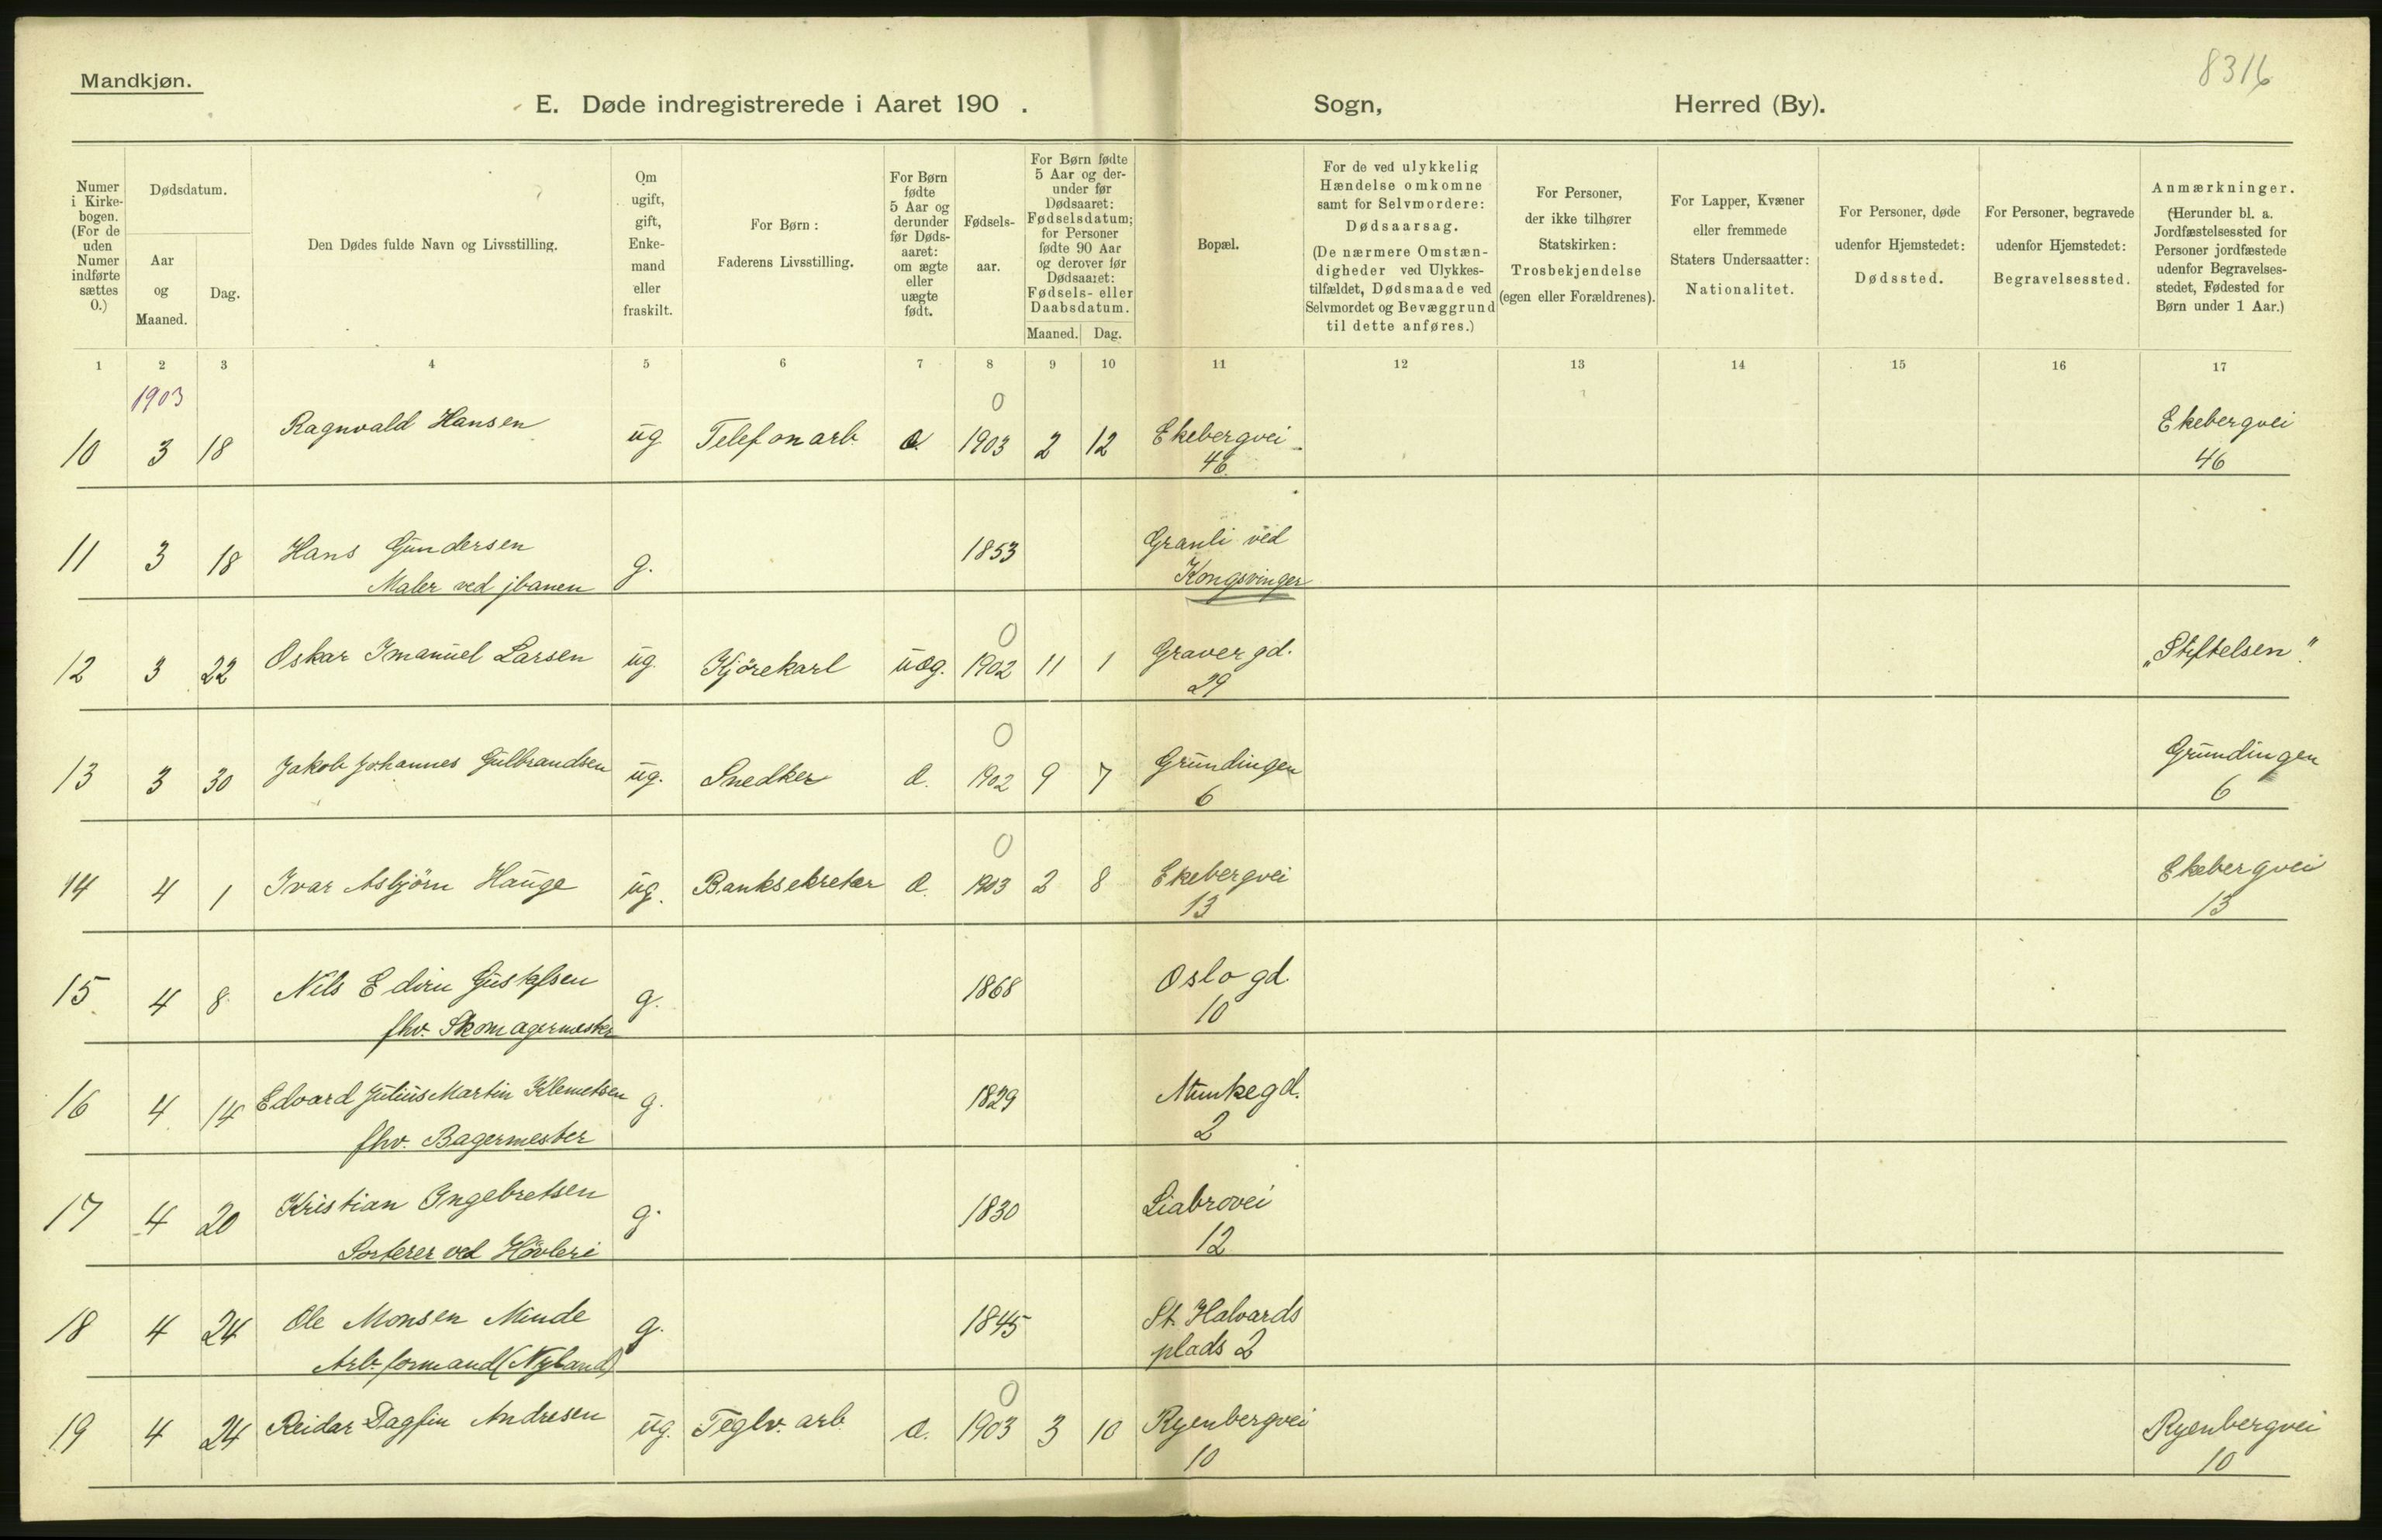 8316
Mandkjøn.
E. Døde indregistrerede i Aaret 190 . Sogn, Herred (By).
Numer i Kirkebogen. (For de uden Numer indførte sættes 0.)
Dødsdatum.
Aar og Maaned.
Dag.
Den Dødes fulde Navn og Livsstilling.
Om ugift, gift, Enkemand eller fraskilt.
For Børn: Faderens Livsstilling.
For Børn fødte 5 Aar og derunder før Dødsaaret: om ægte eller uægte født.
Fødselsaar.
For Børn fødte 5 Aar og derunder før Dødsaaret: Fødselsdatum; for Personer fødte 90 Aar og derover før Dødsaaret: Fødsels- eller Daabsdatum.
Maaned. Dag.
Bopæl.
For de ved ulykkelig Hændelse omkomne samt for Selvmordere: Dødsaarsag. (De nærmere Omstændigheder ved Ulykkestilfældet, Dødsmaade ved Selvmordet og Bevæggrund til dette anføres.)
For Personer, der ikke tilhører Statskirken: Trosbekjendelse (egen eller Forældrenes).
For Lapper, Kvæner eller fremmede Staters Undersaatter: Nationalitet.
For Personer, døde udenfor Hjemstedet: Dødssted.
For Personer, begravede udenfor Hjemstedet: Begravelsessted.
Anmærkninger. (Herunder bl. a. Jordfæstelsessted for Personer jordfæstede udenfor Begravelsesstedet, Fødested for Børn under 1 Aar.)
1 2 3 4 5 6 7 8 9 10 11 12 13 14 15 16 17
1903 0
10 3 18 Ragnvald Hansen ug Telefonarb. 1903 2 12 Ekebergvei Ekebergvei
46 46
11 3 18 Hans Gundersen g. 1853 Granli ved
Maler ved jbanen Kongsvinger
0
12 3 22 Oskar Imanuel Larsen ug. Kjörekarl uæg. 1902 11 1 Gravergd. „Stiftelsen".
29
0
13 3 30 Jakob Johannes Gulbrandsen ug. Snedker 1902 9 7 Grundingen Grundingen
6 6
0
14 4 1 Ivar Asbjörn Hauge ug. Banksekretær 1903 2 8 Ekebergvei Ekebergvei
13 13
15 4 8 Nils Edvin Gustafsen g. 1868 Oslogd.
fhv. Skomagermester 10
16 4 14 Edvard Julius Martin Klemetsen g. 1829 Munkegd.
fhv. Bagermester 2
17 4 20 Kristian Ingebretsen g. 1830 Liabrovei
Sorterer ved Hövleri 12
18 4 24 Ole Monsen Minde g. 1845 St. Halvards
Arb. formand (Nyland) plads 2
0
19 4 24 Reidar Dagfin Andresen ug. Teglv. arb. 1903 3 10 Ryenbergvei Ryenbergvei
10 10